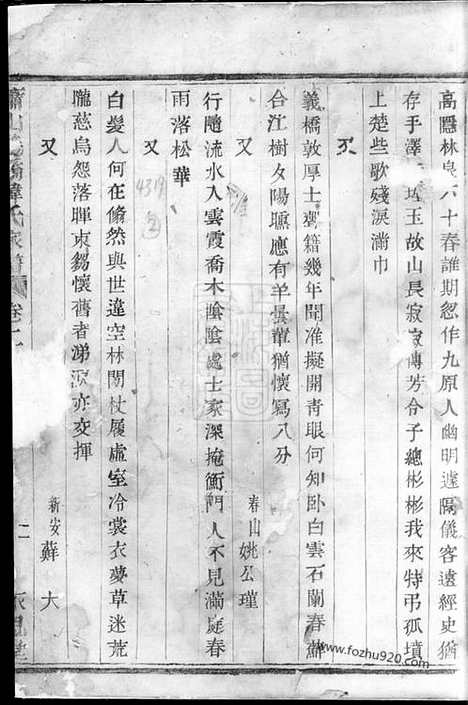 高隱林泉八十春誰期忽作九原人幽明遽隔儀客遠經史猶
存手澤 埋玉故山長寂寂傳芳令子總彬彬我來特弔孤墳
上楚些歌殘淚滿巾
又
義橋敦厚士 籍幾年聞准擬開靑眼何知卧白雲石蘭春 
合江樹夕陽曛應有羊曇輩猶懷寫八分
春山姚公瑾
又
行隨流水入雲霞喬木陰陰處士家深掩衡門人不見滿庭春
雨落松華
又
白髮人何在翛然與世違空林閒杖履虛室冷裳衣蔓草迷荒
隴慈烏怨落暉束芻懷舊者涕淚亦交揮
新安蘇大
氏家譜
卷十
二
4319
www.fozhu920.com